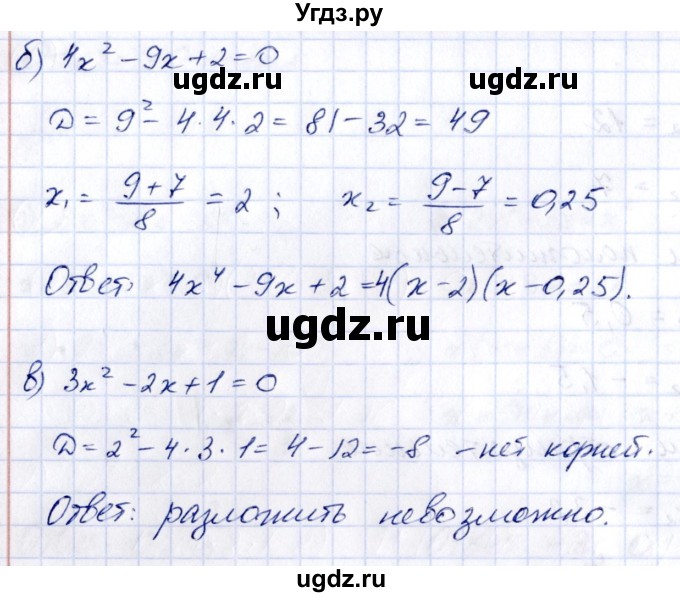 Угдз.ру
б) 4x² - 9x + 2 = 0
ugdz.ru ugdz.ru
D = 9² - 4·4·2 = 81 - 32 = 49
x₁ = (9+7)/8 = 2 ; x₂ = (9-7)/8 = 0,25
Ответ: 4x⁴ - 9x + 2 = 4(x-2)(x-0,25).
ugdz.ru
в) 3x² - 2x + 1 = 0
D = 2² - 4·3·1 = 4 - 12 = -8 - нет корней.
Ответ: разложить невозможно.
ugdz.ru